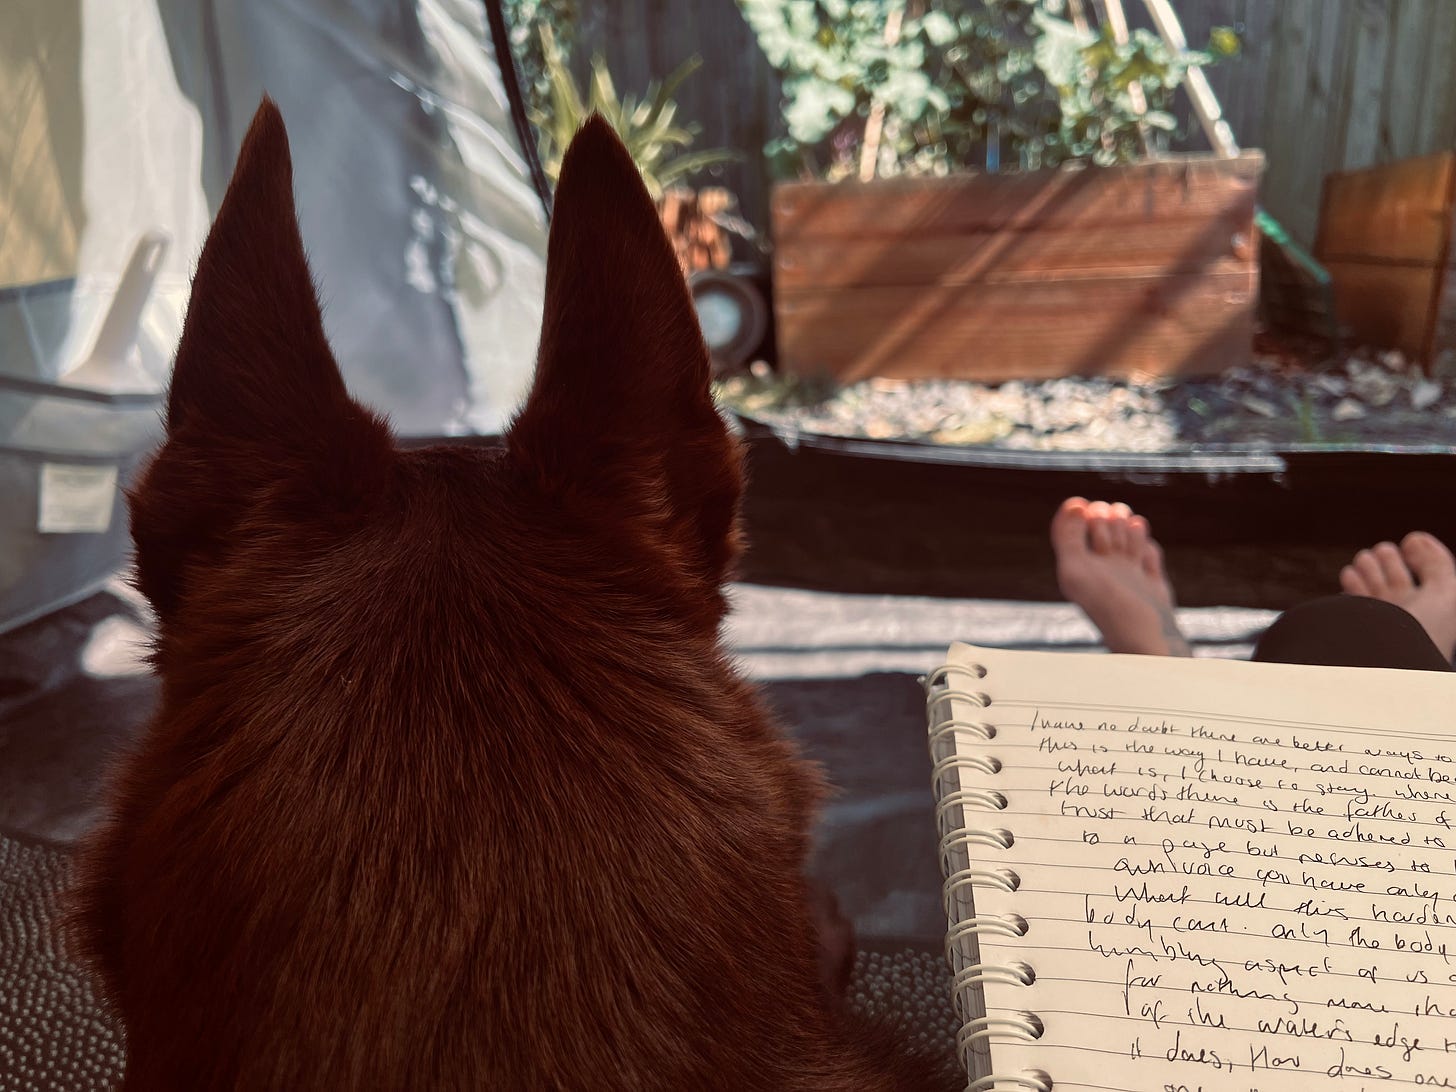 I have no doubt there are better ways to
this is the way I have, and cannot be
what is, I choose to stay. where
the words there is the father of
trust that must be adhered to
to a page but refuses to
own voice you have only
What will this harden
body can't. only the body
humbling aspect of us
for nothing more tha
of the water's edge
it does, How does one